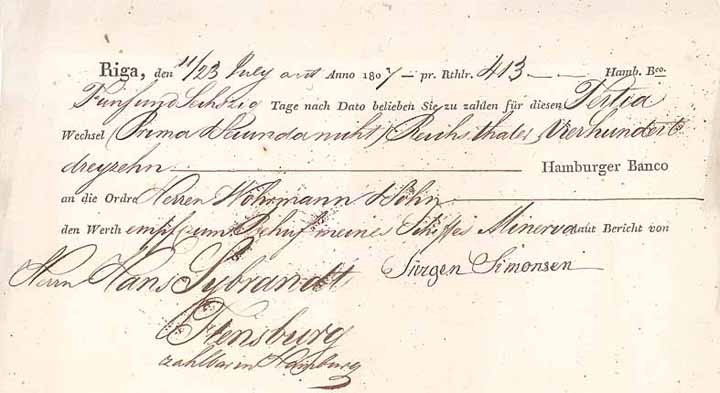 Riga, den 11/23 July ant Anno 1807 — pr. Rthlr. 413 — — Hamb. Bco.
Fünfundsechzig Tage nach Dato belieben Sie zu zahlen für diesen Tertia
Wechsel (Prima Secunda nicht) Reichsthaler Vierhundert
dreyzehn Hamburger Banco
an die Ordre Herren Wöhrmann & Sohn
den Werth empf. zum Behuf meines Schiffes Minerva laut Bericht von
Herrn Hans Sybrandt Jürgen Simonsen
Flensburg
zahlbar in Hamburg